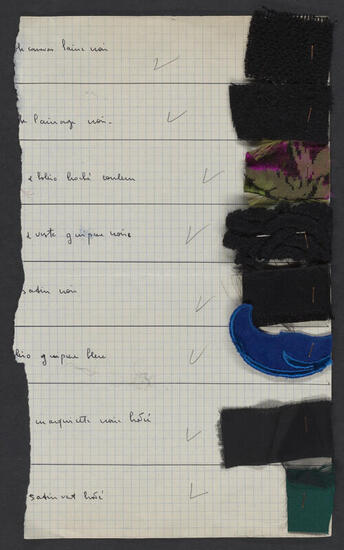 de canvas laine noir
de lainage noir.
e boléro broché couleur
e veste guipure noire
satin noir
léro guipure bleue
marquisette noire
satin vert